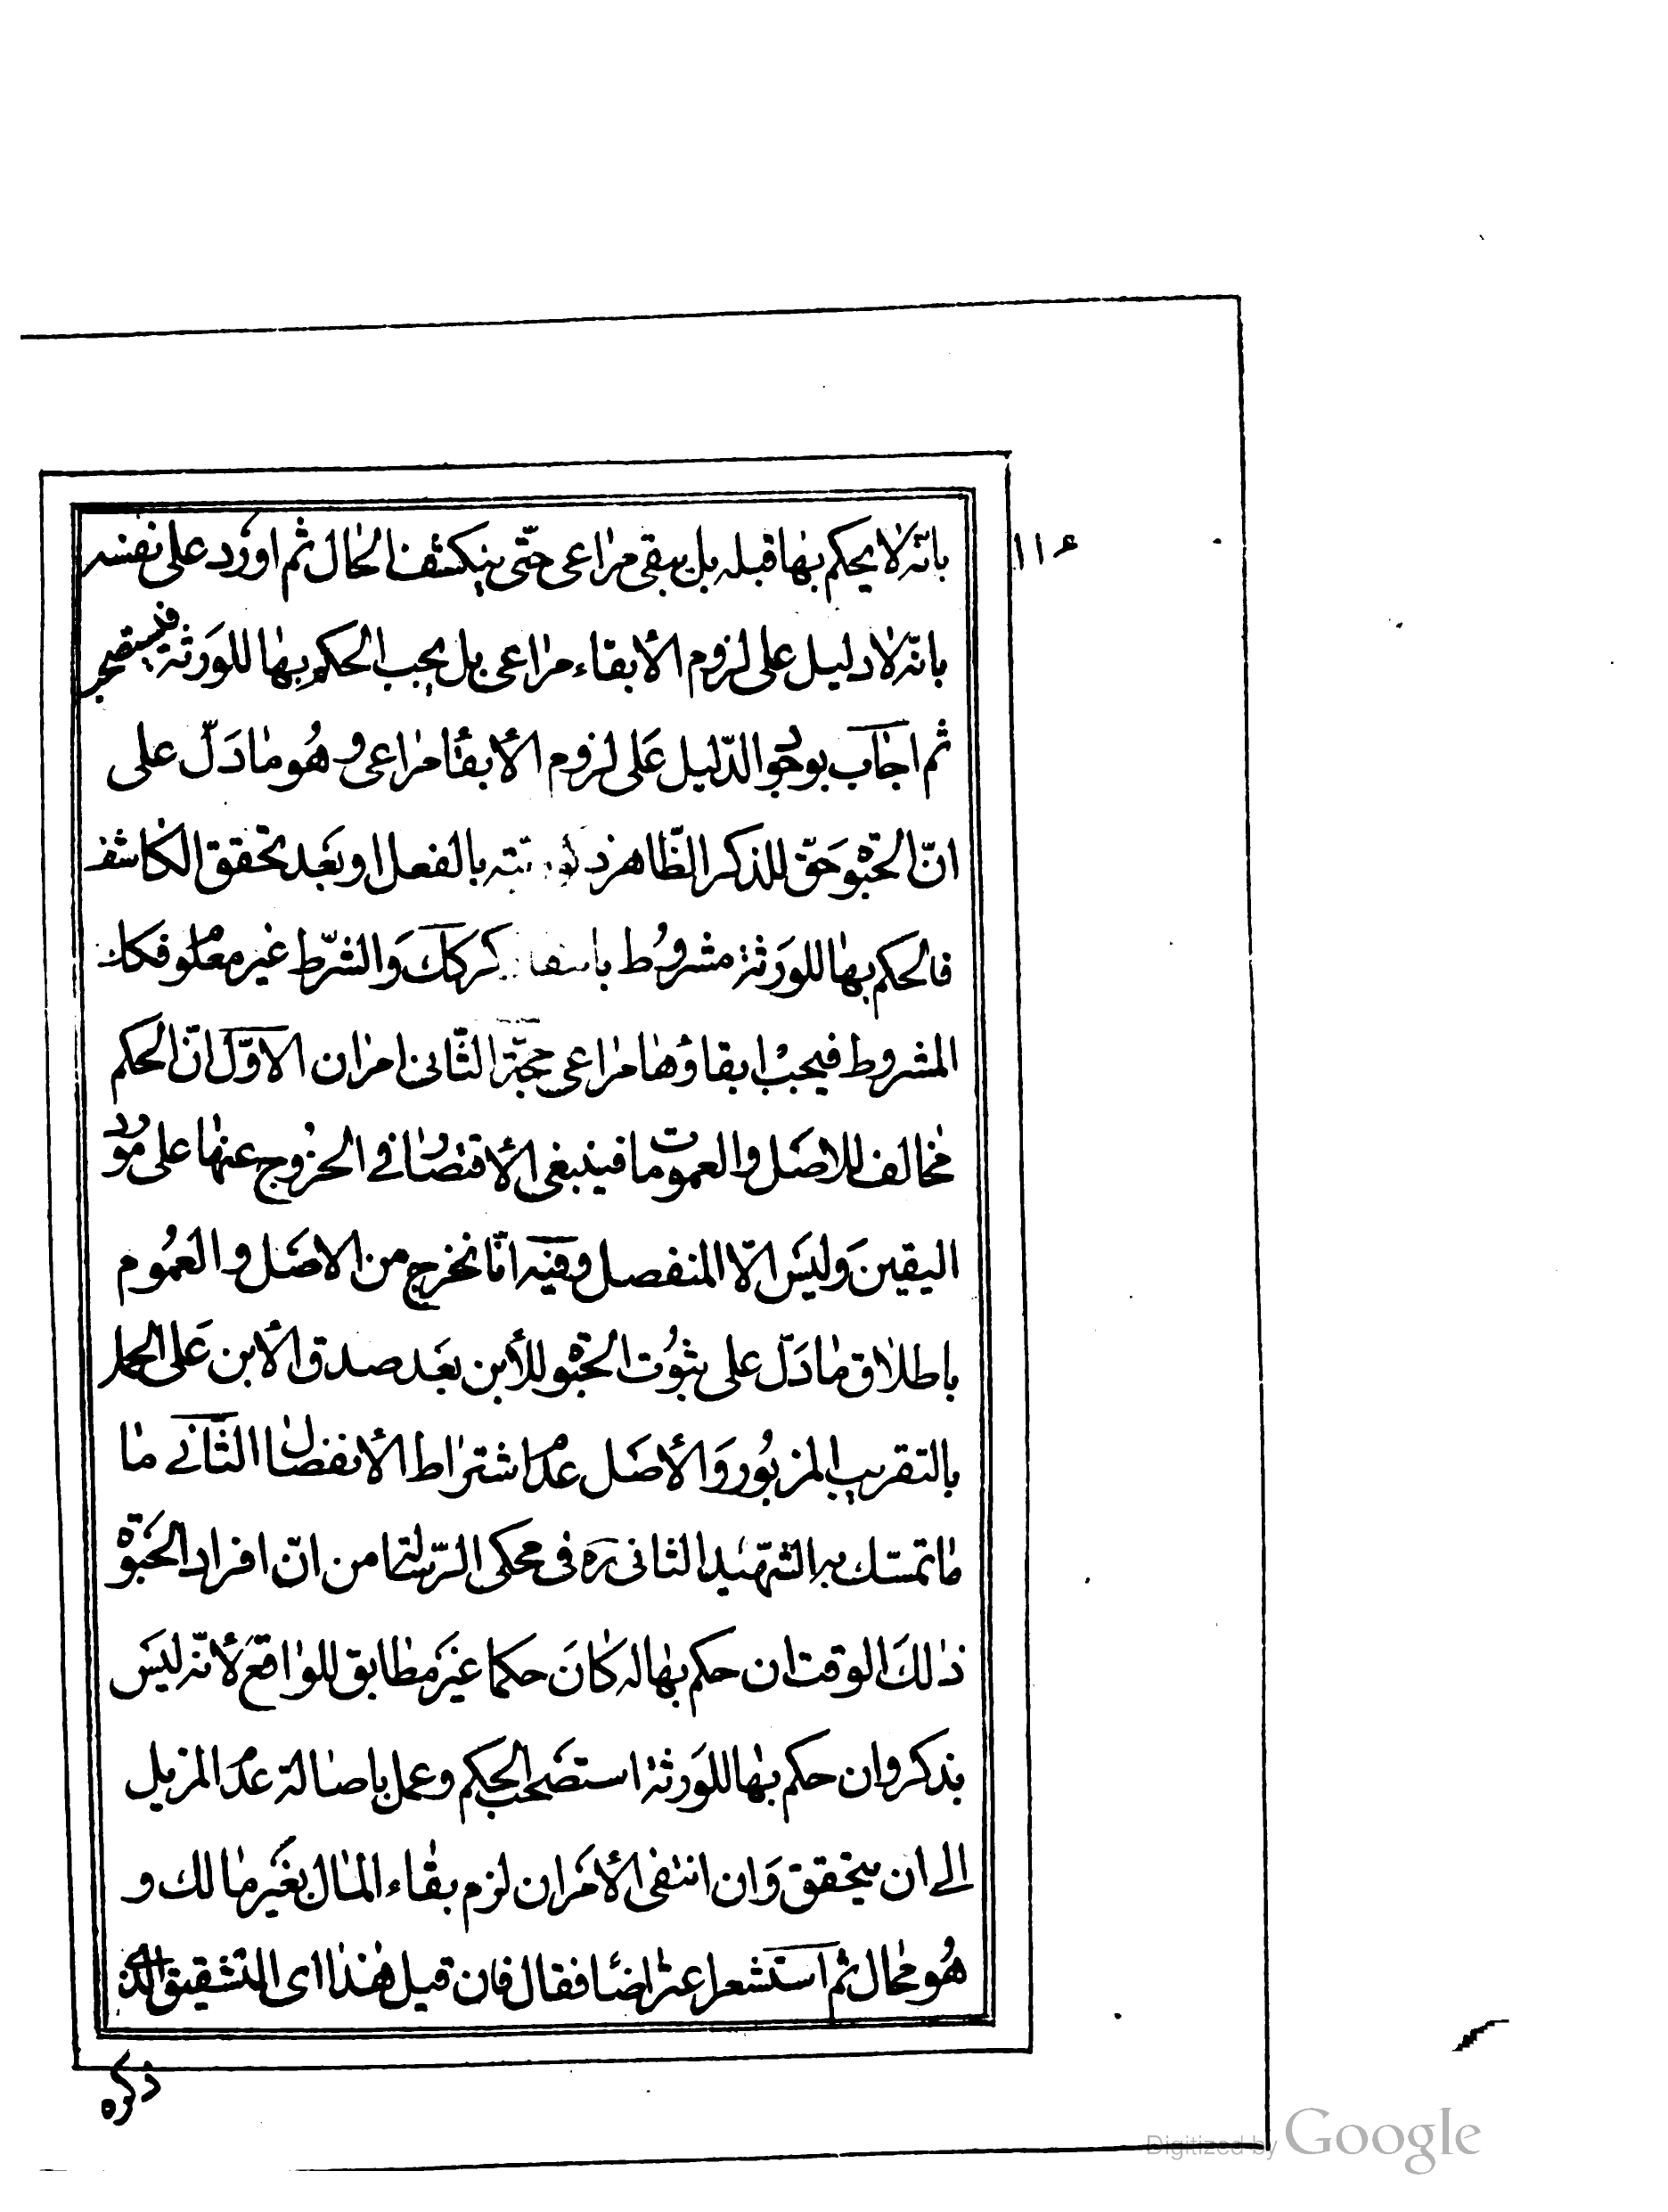 ١١٤
بانّه لا يحكم بها قبله بل يبقى مراعى حتّى ينكشف الحال ثم اورد على نفسه
بانّه لا دليل على لزوم الأبقاء مراعى بل يجب الحكم بها للورثة فيستصحب
ثم اجاب بوجود الدّليل على لزوم الأبقاء مراعى وهو ما دلّ على
انّ الحبوة حقّ للذكر الظّاهر بالفعل او بعد تحقق الكاشف
فالحكم بها للورثة مشروط كك والشّرط غير معلوم فكك
المشروط فيجب ابقاؤها مراعى حجّة الثّانى امران الاوّل انّ الحكم
مخالف للاصل والعمومات فينبغى الأقتصار فى الخروج عنها على مورد
اليقين وليس الّا المنفصل وفيه انّا نخرج من الاصل والعموم
باطلاق ما دلّ على ثبوت الحبوة للأبن بعد صدق الأبن على الحمل
بالتقريب المزبور والأصل عدم اشتراط الأنفصال الثّانى ما
ما تمسّك به الشّهيد الثانى ره فى محكى الرّسالة من انّ افراد الحبوة
ذلك الوقت ان حكم بها له كان حكما غير مطابق للواقع لأنّه ليس
بذكر وان حكم بها للورثة استصحب الحكم وعمل باصالة عدم المزيل
الى ان يتحقق وان انتفى الأمران لزم بقاء المال بغير مالك و
هو محال ثم استشعر اعتراضا فقال فان قيل هذا اى التشقيق الذى
ذكره
Digitized by Google